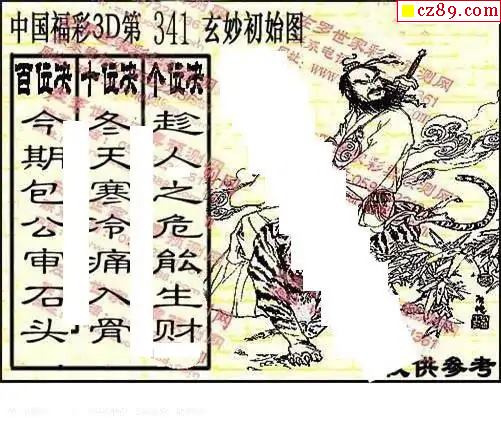 cz89.com
中国福彩3D第 341 玄妙初始图
百位决 十位决 个位决
今期包公审石头
冬天寒冷痛入骨
趁人之危能生财
供参考